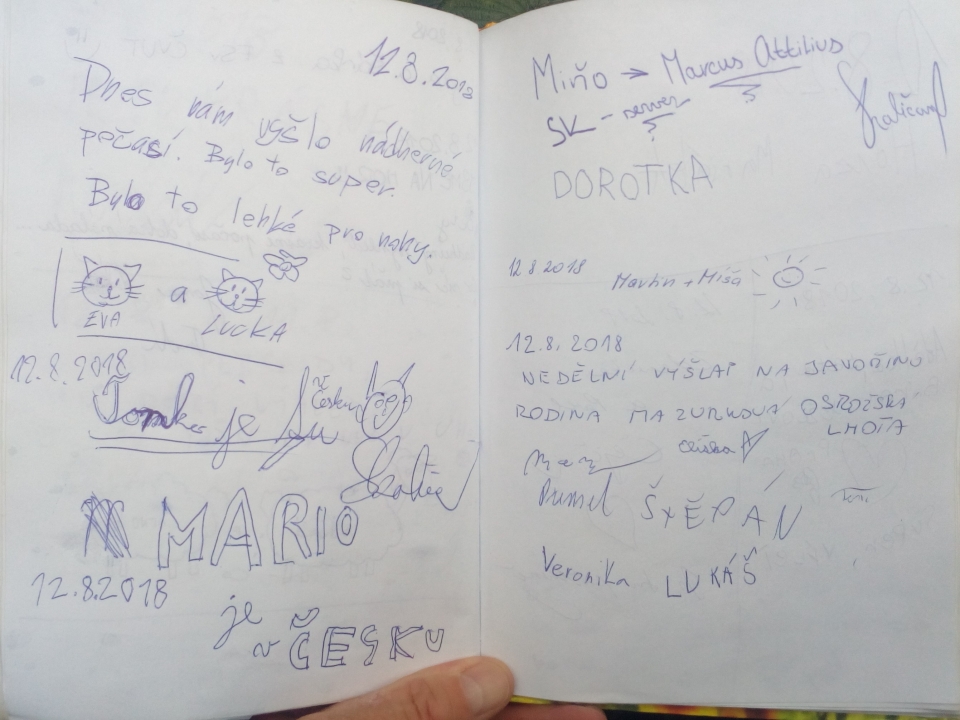 12.8.2018
Dnes nám vyšlo nádherné
pečasí. Bylo to super.
Bylo to lehké pro nohy.
a
EVA
LUCKA
12.8.2018
je
v Česku
MARIO
12.8.2018
je
v ČESKU
Miňo → Marcus Attilius
SK - server
?
DOROTKA
12 8 2018
Martin + Míša
12.8.2018
NEDĚLNÍ VÝŠLAP NA JAVOŘINU
RODINA MAZURKOVÁ OSTROŽSKÁ
LHOTA
ŠTĚPÁN
Veronika LUKÁŠ